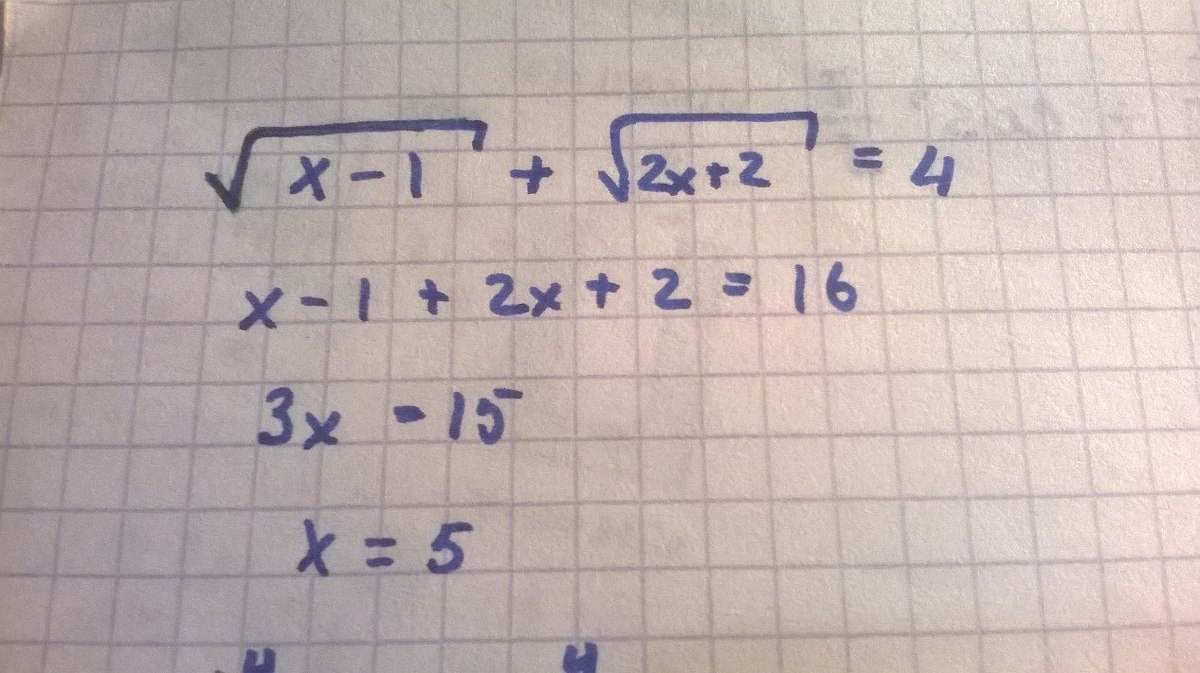 √(x - 1) + √(2x + 2) = 4
x - 1 + 2x + 2 = 16
3x - 15
x = 5